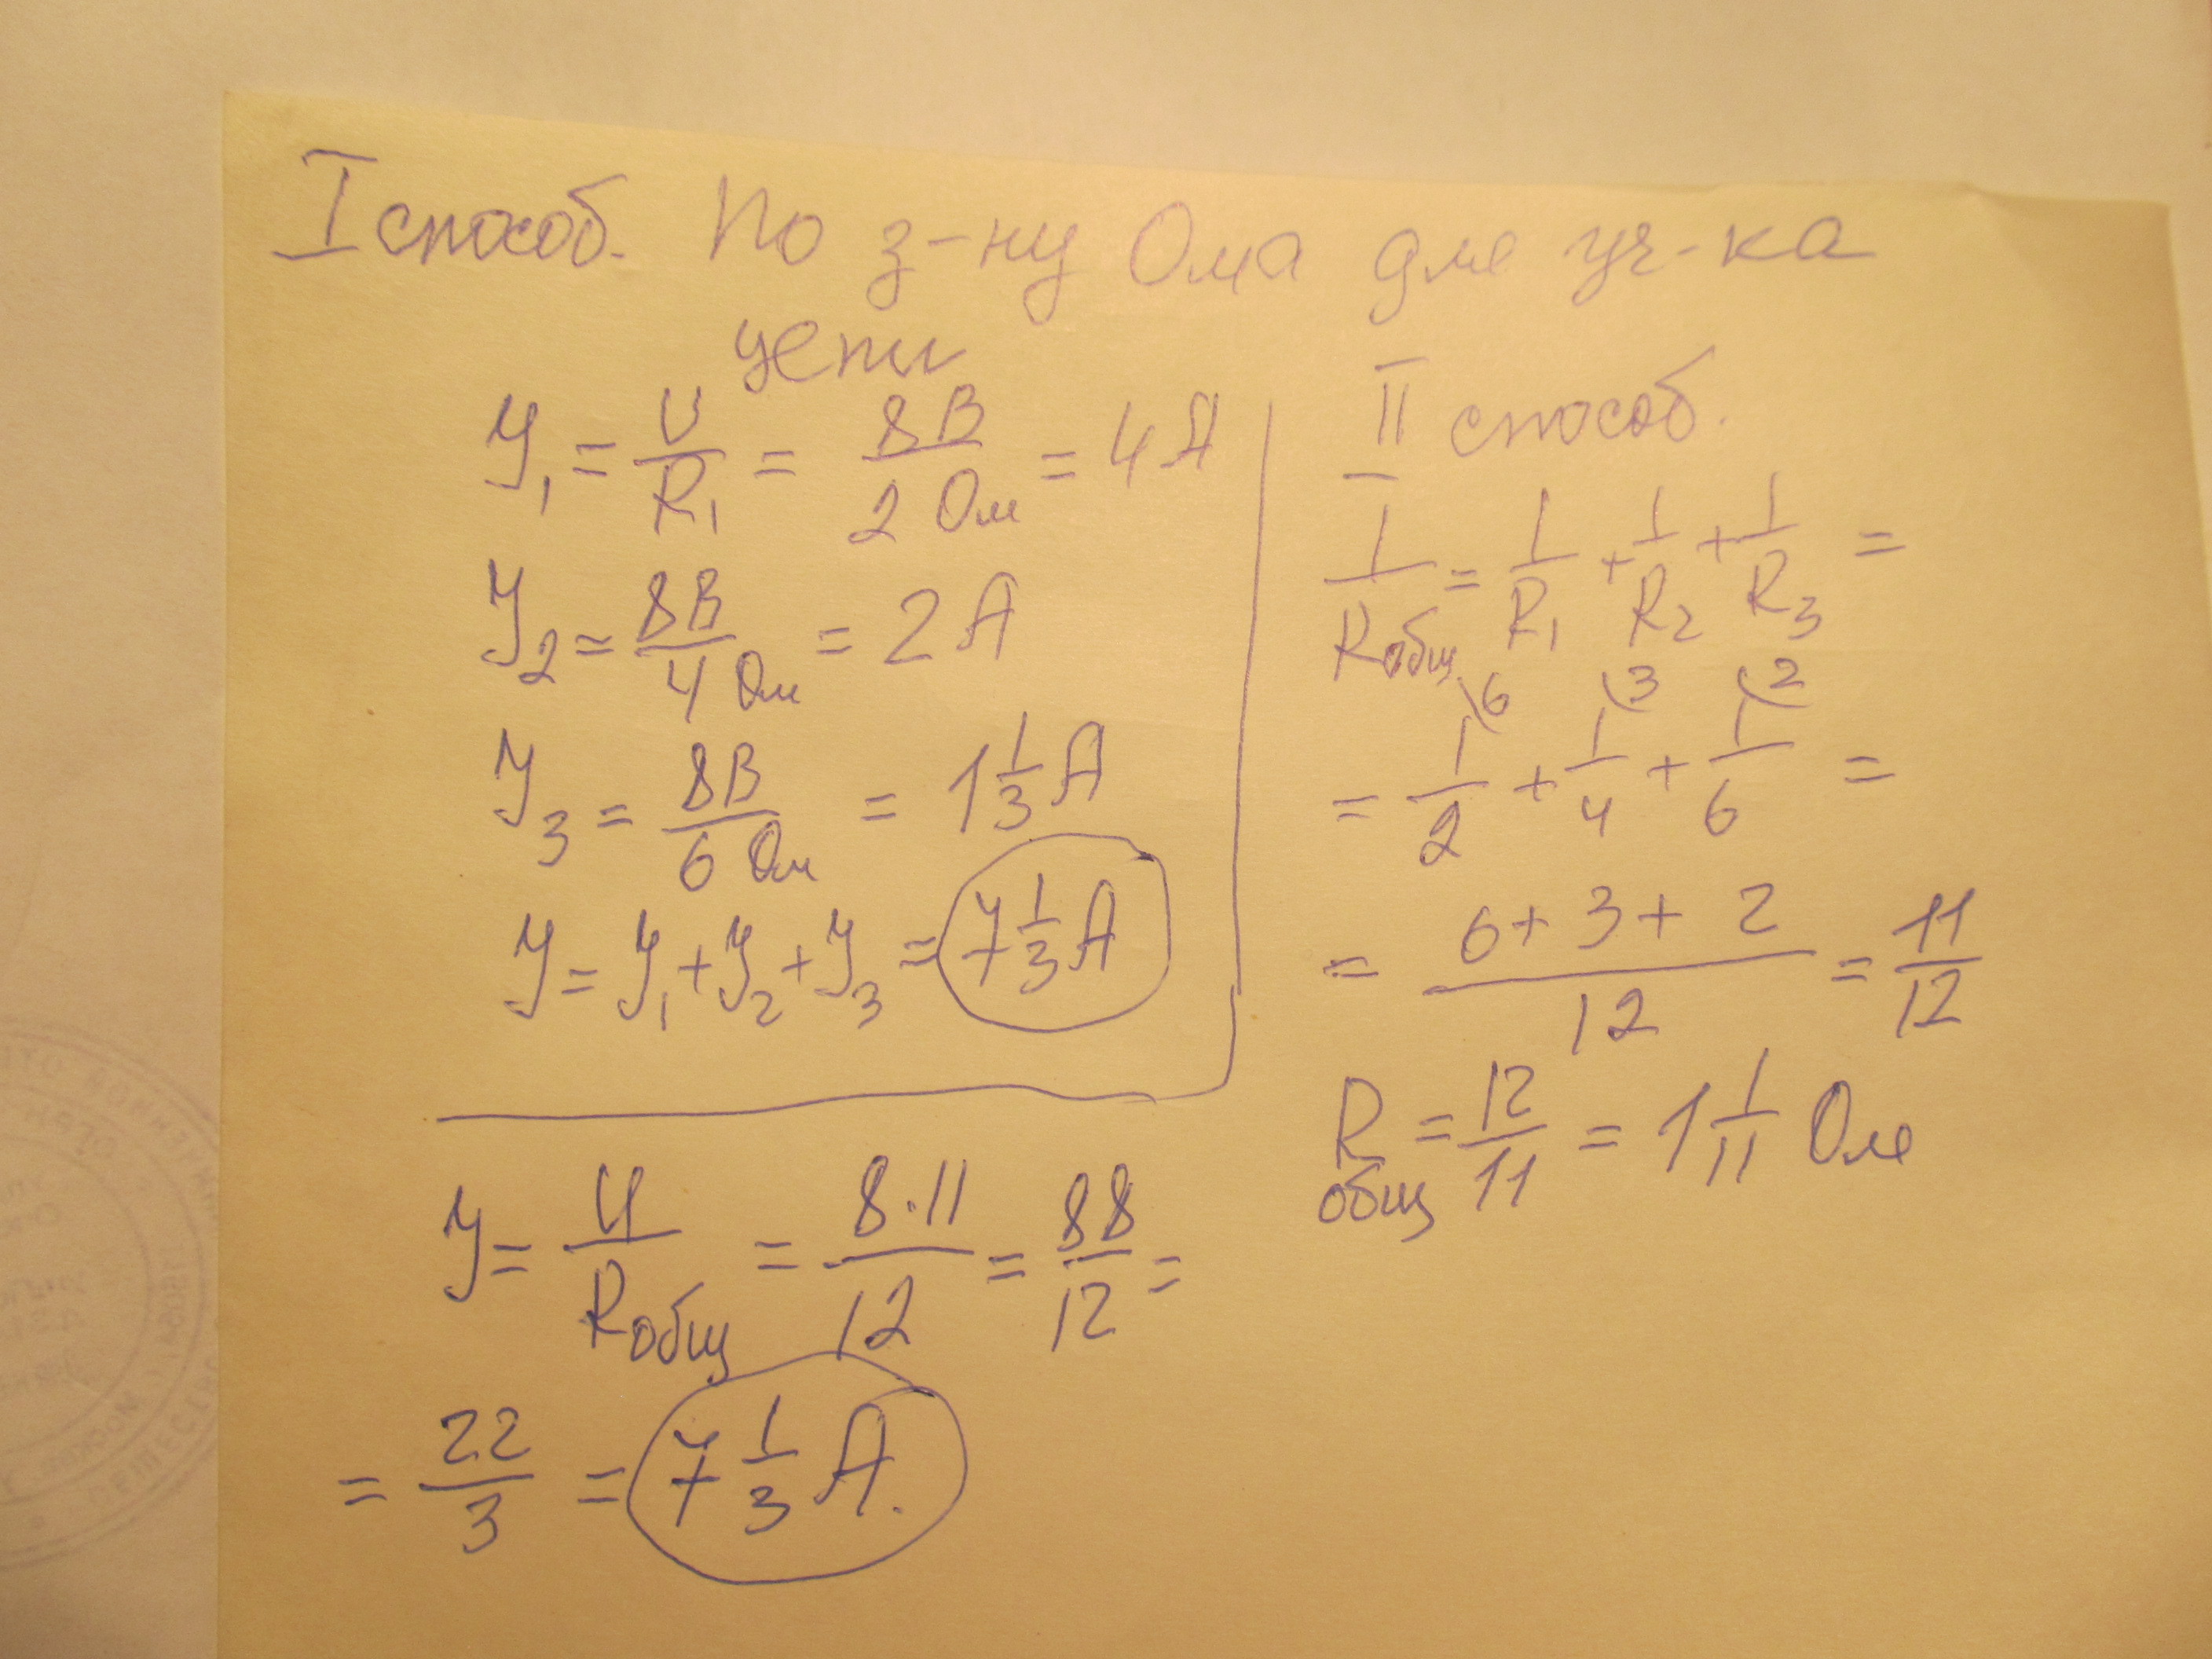 I способ. По з-ну Ома для уч-ка
цепи
У₁ = U/R₁ = 8В/2 Ом = 4 А
У₂ = 8В/4 Ом = 2 А
У₃ = 8В/6 Ом = 1 1/3 А
У = У₁ + У₂ + У₃ = 7 1/3 А
II способ.
1/Rобщ = 1/R₁ + 1/R₂ + 1/R₃ =
= 1\6/2 + 1\3/4 + 1\2/6 =
= 6 + 3 + 2/12 = 11/12
Rобщ = 12/11 = 1 1/11 Ом
У = U/Rобщ = 8·11/12 = 88/12 =
= 22/3 = 7 1/3 А.